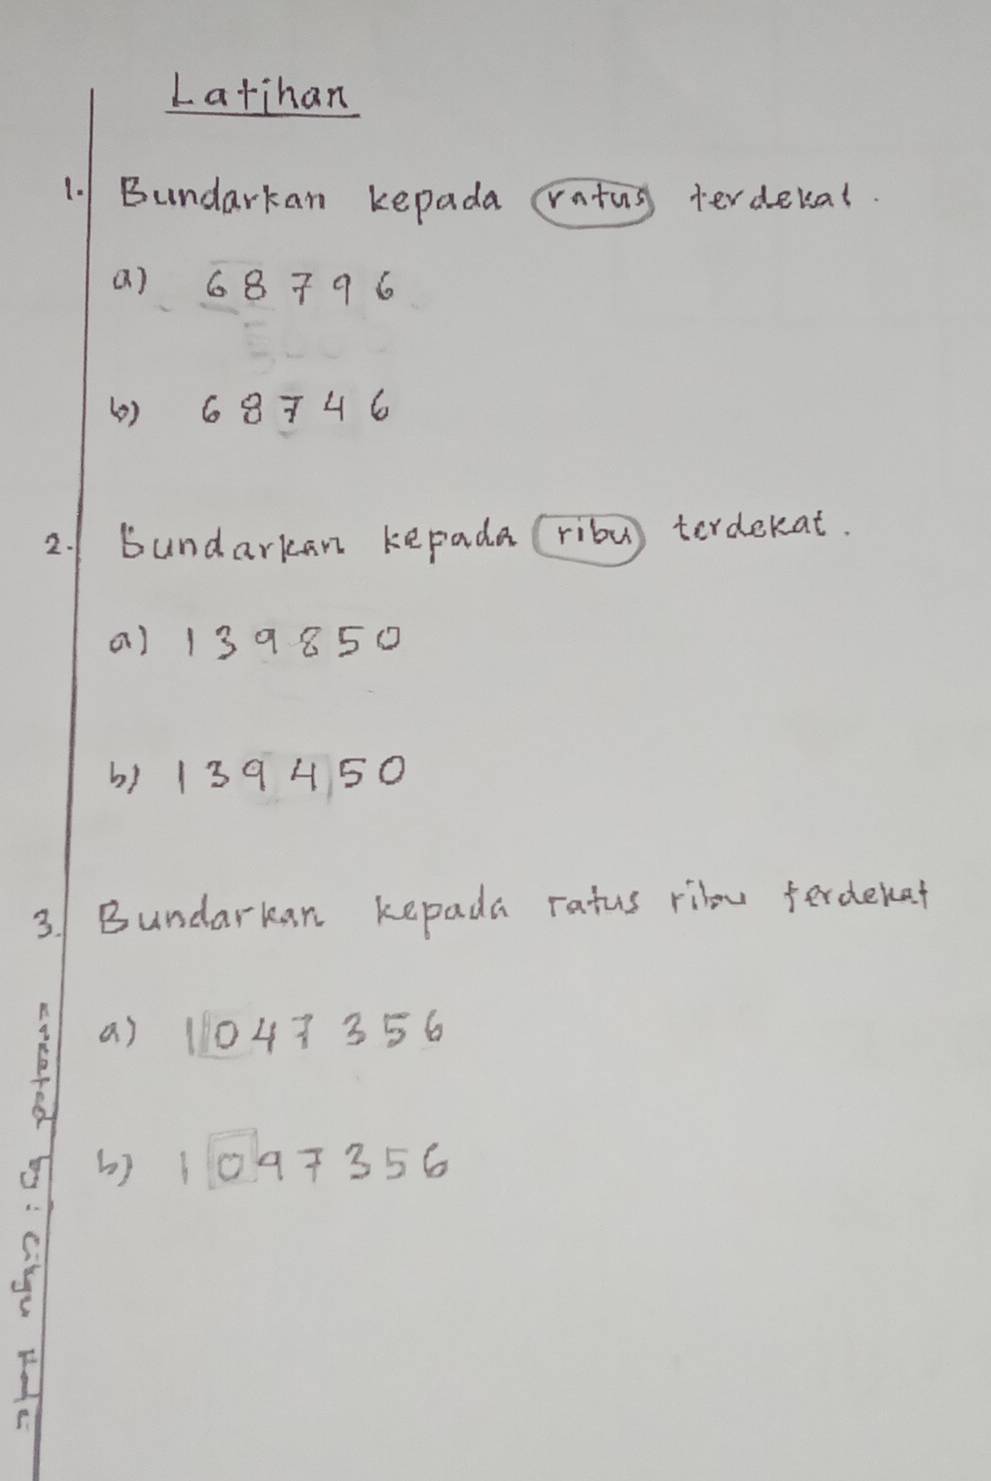 Latihan
1. Bundarkan kepada ratus terdekat.
a) 68796
b) 68746
2. Bundarkan kepada ribu terdekat.
a) 139850
b) 139450
3. Bundarkan kepada ratus ribu terdekat
a) 1047356
b) 1097356
created by: cikgu